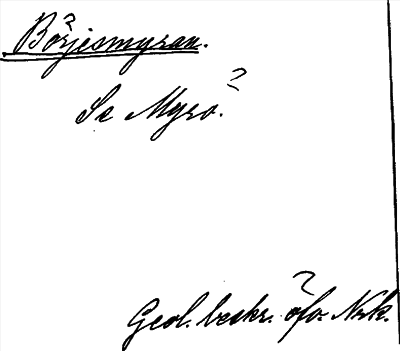 Börjesmyran.
Se Myro?
Geol. beskr. öfv. Nrk.